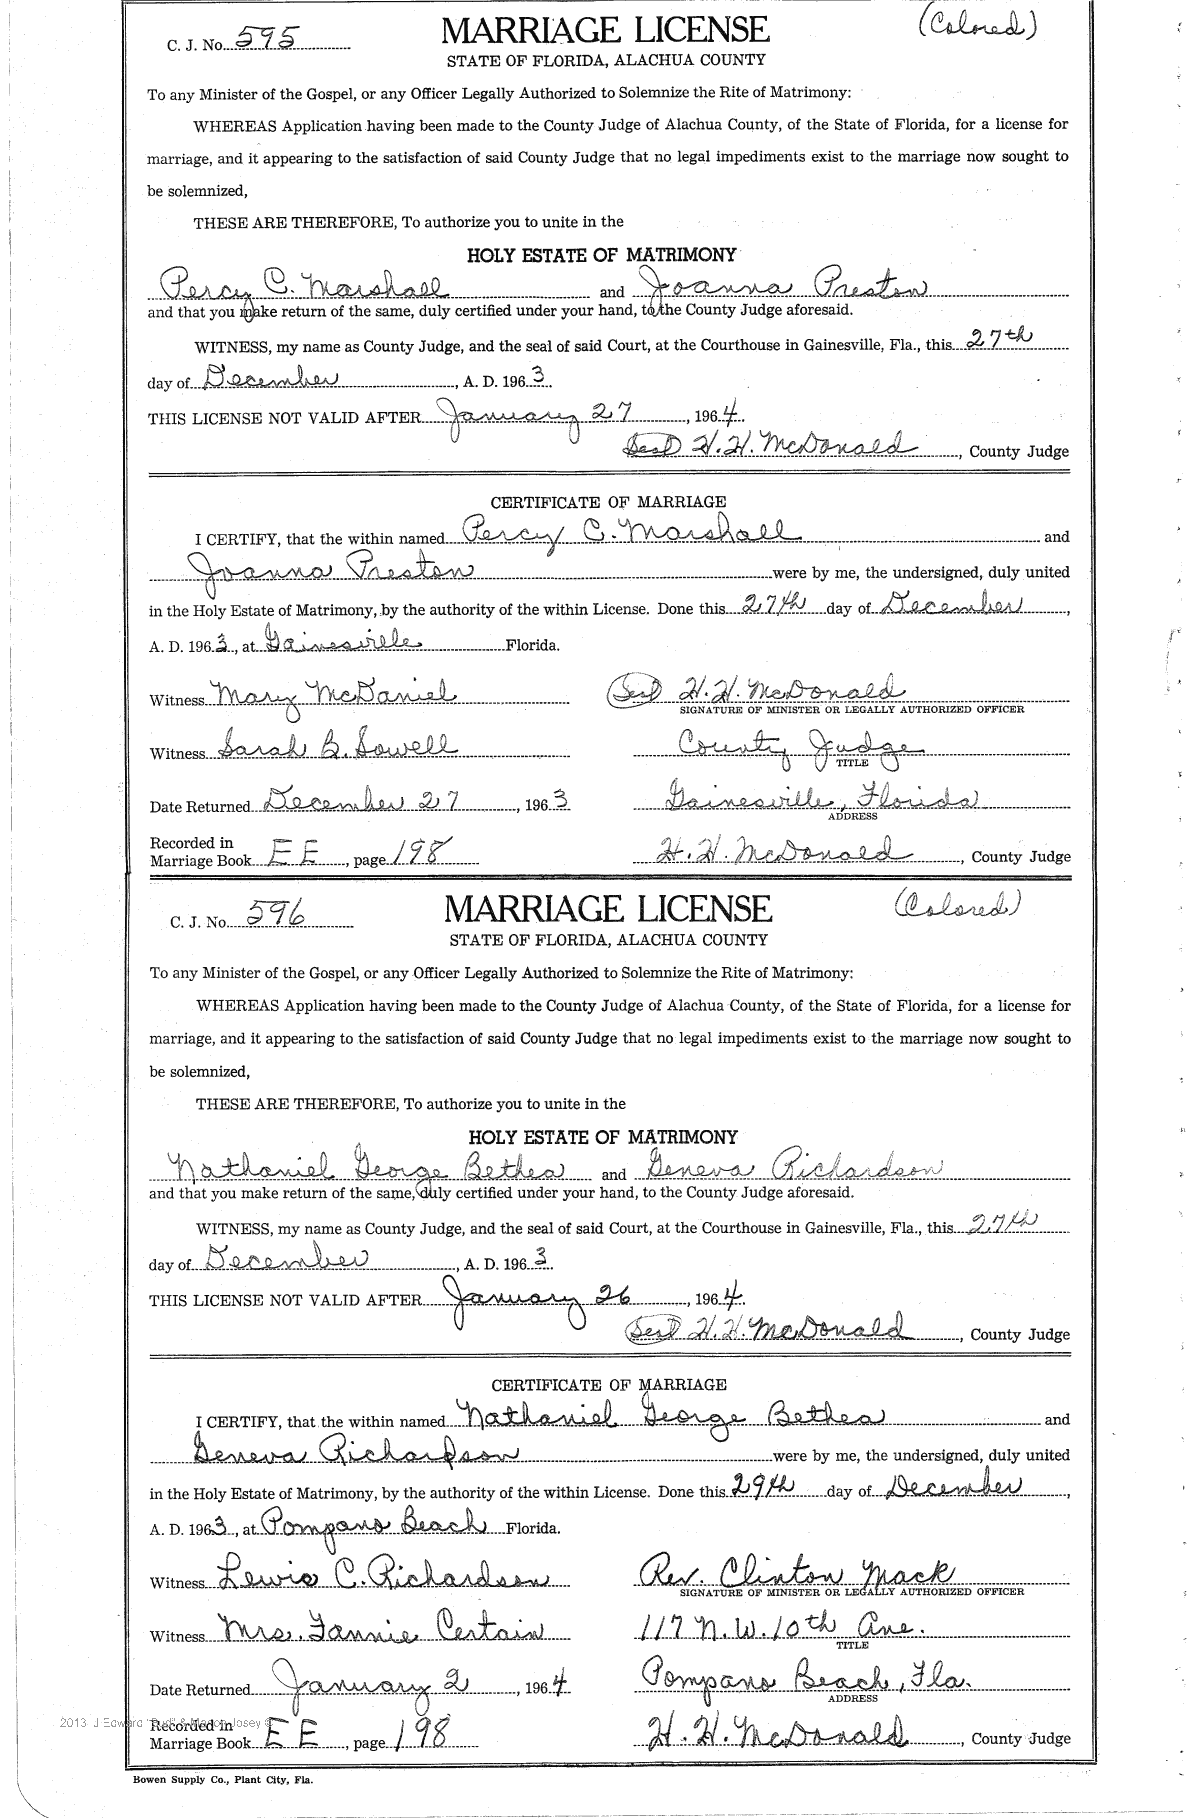 C. J. No. 595 MARRIAGE LICENSE (Colored)
STATE OF FLORIDA, ALACHUA COUNTY
To any Minister of the Gospel, or any Officer Legally Authorized to Solemnize the Rite of Matrimony:
WHEREAS Application having been made to the County Judge of Alachua County, of the State of Florida, for a license for
marriage, and it appearing to the satisfaction of said County Judge that no legal impediments exist to the marriage now sought to
be solemnized,
THESE ARE THEREFORE, To authorize you to unite in the
HOLY ESTATE OF MATRIMONY
Percy C. Marshall and Joanna Preston
and that you make return of the same, duly certified under your hand, to the County Judge aforesaid.
WITNESS, my name as County Judge, and the seal of said Court, at the Courthouse in Gainesville, Fla., this 27th
day of December, A. D. 1963.
THIS LICENSE NOT VALID AFTER January 27, 1964.
Seal H. H. McDonald, County Judge
CERTIFICATE OF MARRIAGE
I CERTIFY, that the within named Percy C. Marshall and
Joanna Preston were by me, the undersigned, duly united
in the Holy Estate of Matrimony, by the authority of the within License. Done this 27th day of December,
A. D. 1963, at Gainesville Florida.
Witness Mary McDaniel Seal H. H. McDonald
SIGNATURE OF MINISTER OR LEGALLY AUTHORIZED OFFICER
Witness Sarah B. Sowell County Judge
TITLE
Date Returned December 27, 1963 Gainesville, Florida
ADDRESS
Recorded in
Marriage Book EE, page 198 H. H. McDonald, County Judge
C. J. No. 596 MARRIAGE LICENSE (Colored)
STATE OF FLORIDA, ALACHUA COUNTY
To any Minister of the Gospel, or any Officer Legally Authorized to Solemnize the Rite of Matrimony:
WHEREAS Application having been made to the County Judge of Alachua County, of the State of Florida, for a license for
marriage, and it appearing to the satisfaction of said County Judge that no legal impediments exist to the marriage now sought to
be solemnized,
THESE ARE THEREFORE, To authorize you to unite in the
HOLY ESTATE OF MATRIMONY
Nathaniel George Bethea and Geneva Richardson
and that you make return of the same, duly certified under your hand, to the County Judge aforesaid.
WITNESS, my name as County Judge, and the seal of said Court, at the Courthouse in Gainesville, Fla., this 27th
day of December, A. D. 1963.
THIS LICENSE NOT VALID AFTER January 26, 1964.
Seal H. H. McDonald, County Judge
CERTIFICATE OF MARRIAGE
I CERTIFY, that the within named Nathaniel George Bethea and
Geneva Richardson were by me, the undersigned, duly united
in the Holy Estate of Matrimony, by the authority of the within License. Done this 29th day of December,
A. D. 1963, at Pompano Beach Florida.
Witness Lewis C. Richardson Rev. Clinton Mack
SIGNATURE OF MINISTER OR LEGALLY AUTHORIZED OFFICER
Witness Mrs. Fannie Certain 117 N.W. 10th Ave.
TITLE
Date Returned January 2, 1964 Pompano Beach, Fla.
ADDRESS
2013 J Edward
Recorded in
Marriage Book EE, page 198 H. H. McDonald, County Judge
Bowen Supply Co., Plant City, Fla.